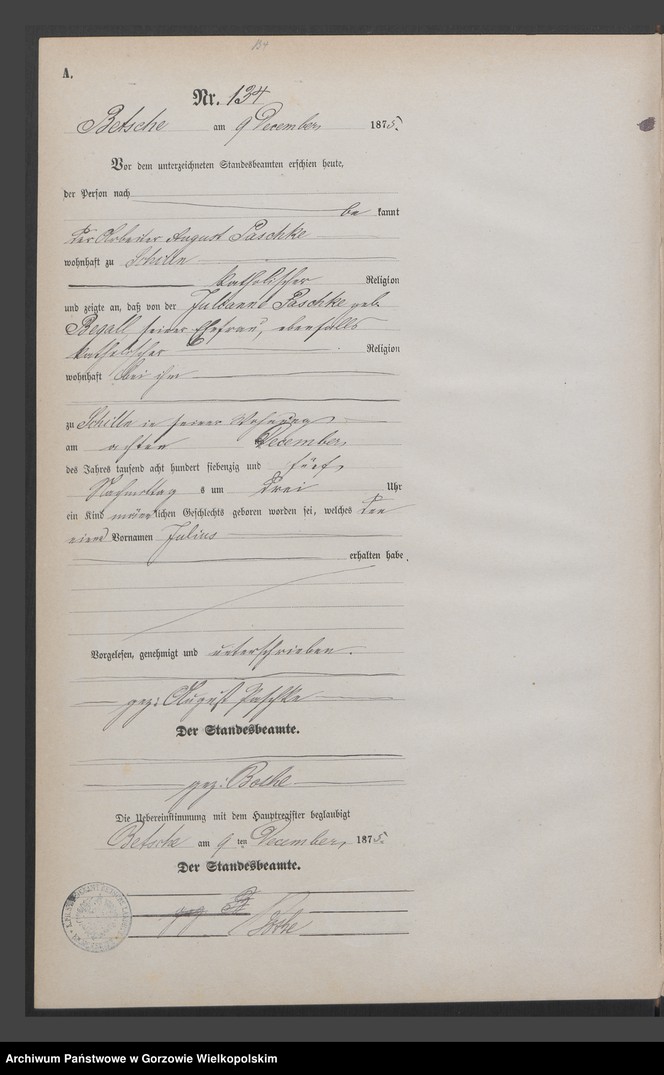 134
A.
Nr. 134
Betsche am 9 December 1875.
Vor dem unterzeichneten Standesbeamten erschien heute,
der Person nach
be kannt
der Arbeiter August Paschke
wohnhaft zu Schilln
katholischer Religion
und zeigte an, daß von der Paschke geb.
seiner Ehefrau, ebenfalls
katholischer Religion
wohnhaft bei ihm
zu Schilln in seiner Wohnung
am achten December
des Jahres tausend acht hundert siebenzig und fünf,
Nachmittag s um drei Uhr
ein Kind männlichen Geschlechts geboren worden sei, welches den
einen Vornamen Julius
erhalten habe.
Vorgelesen, genehmigt und unterschrieben.
gez: August Paschke
Der Standesbeamte.
gez: Bothe
Die Uebereinstimmung mit dem Hauptregister beglaubigt
Betsche am 9 ten December, 1875.
Der Standesbeamte.
gez. B
Bothe
Archiwum Państwowe w Gorzowie Wielkopolskim